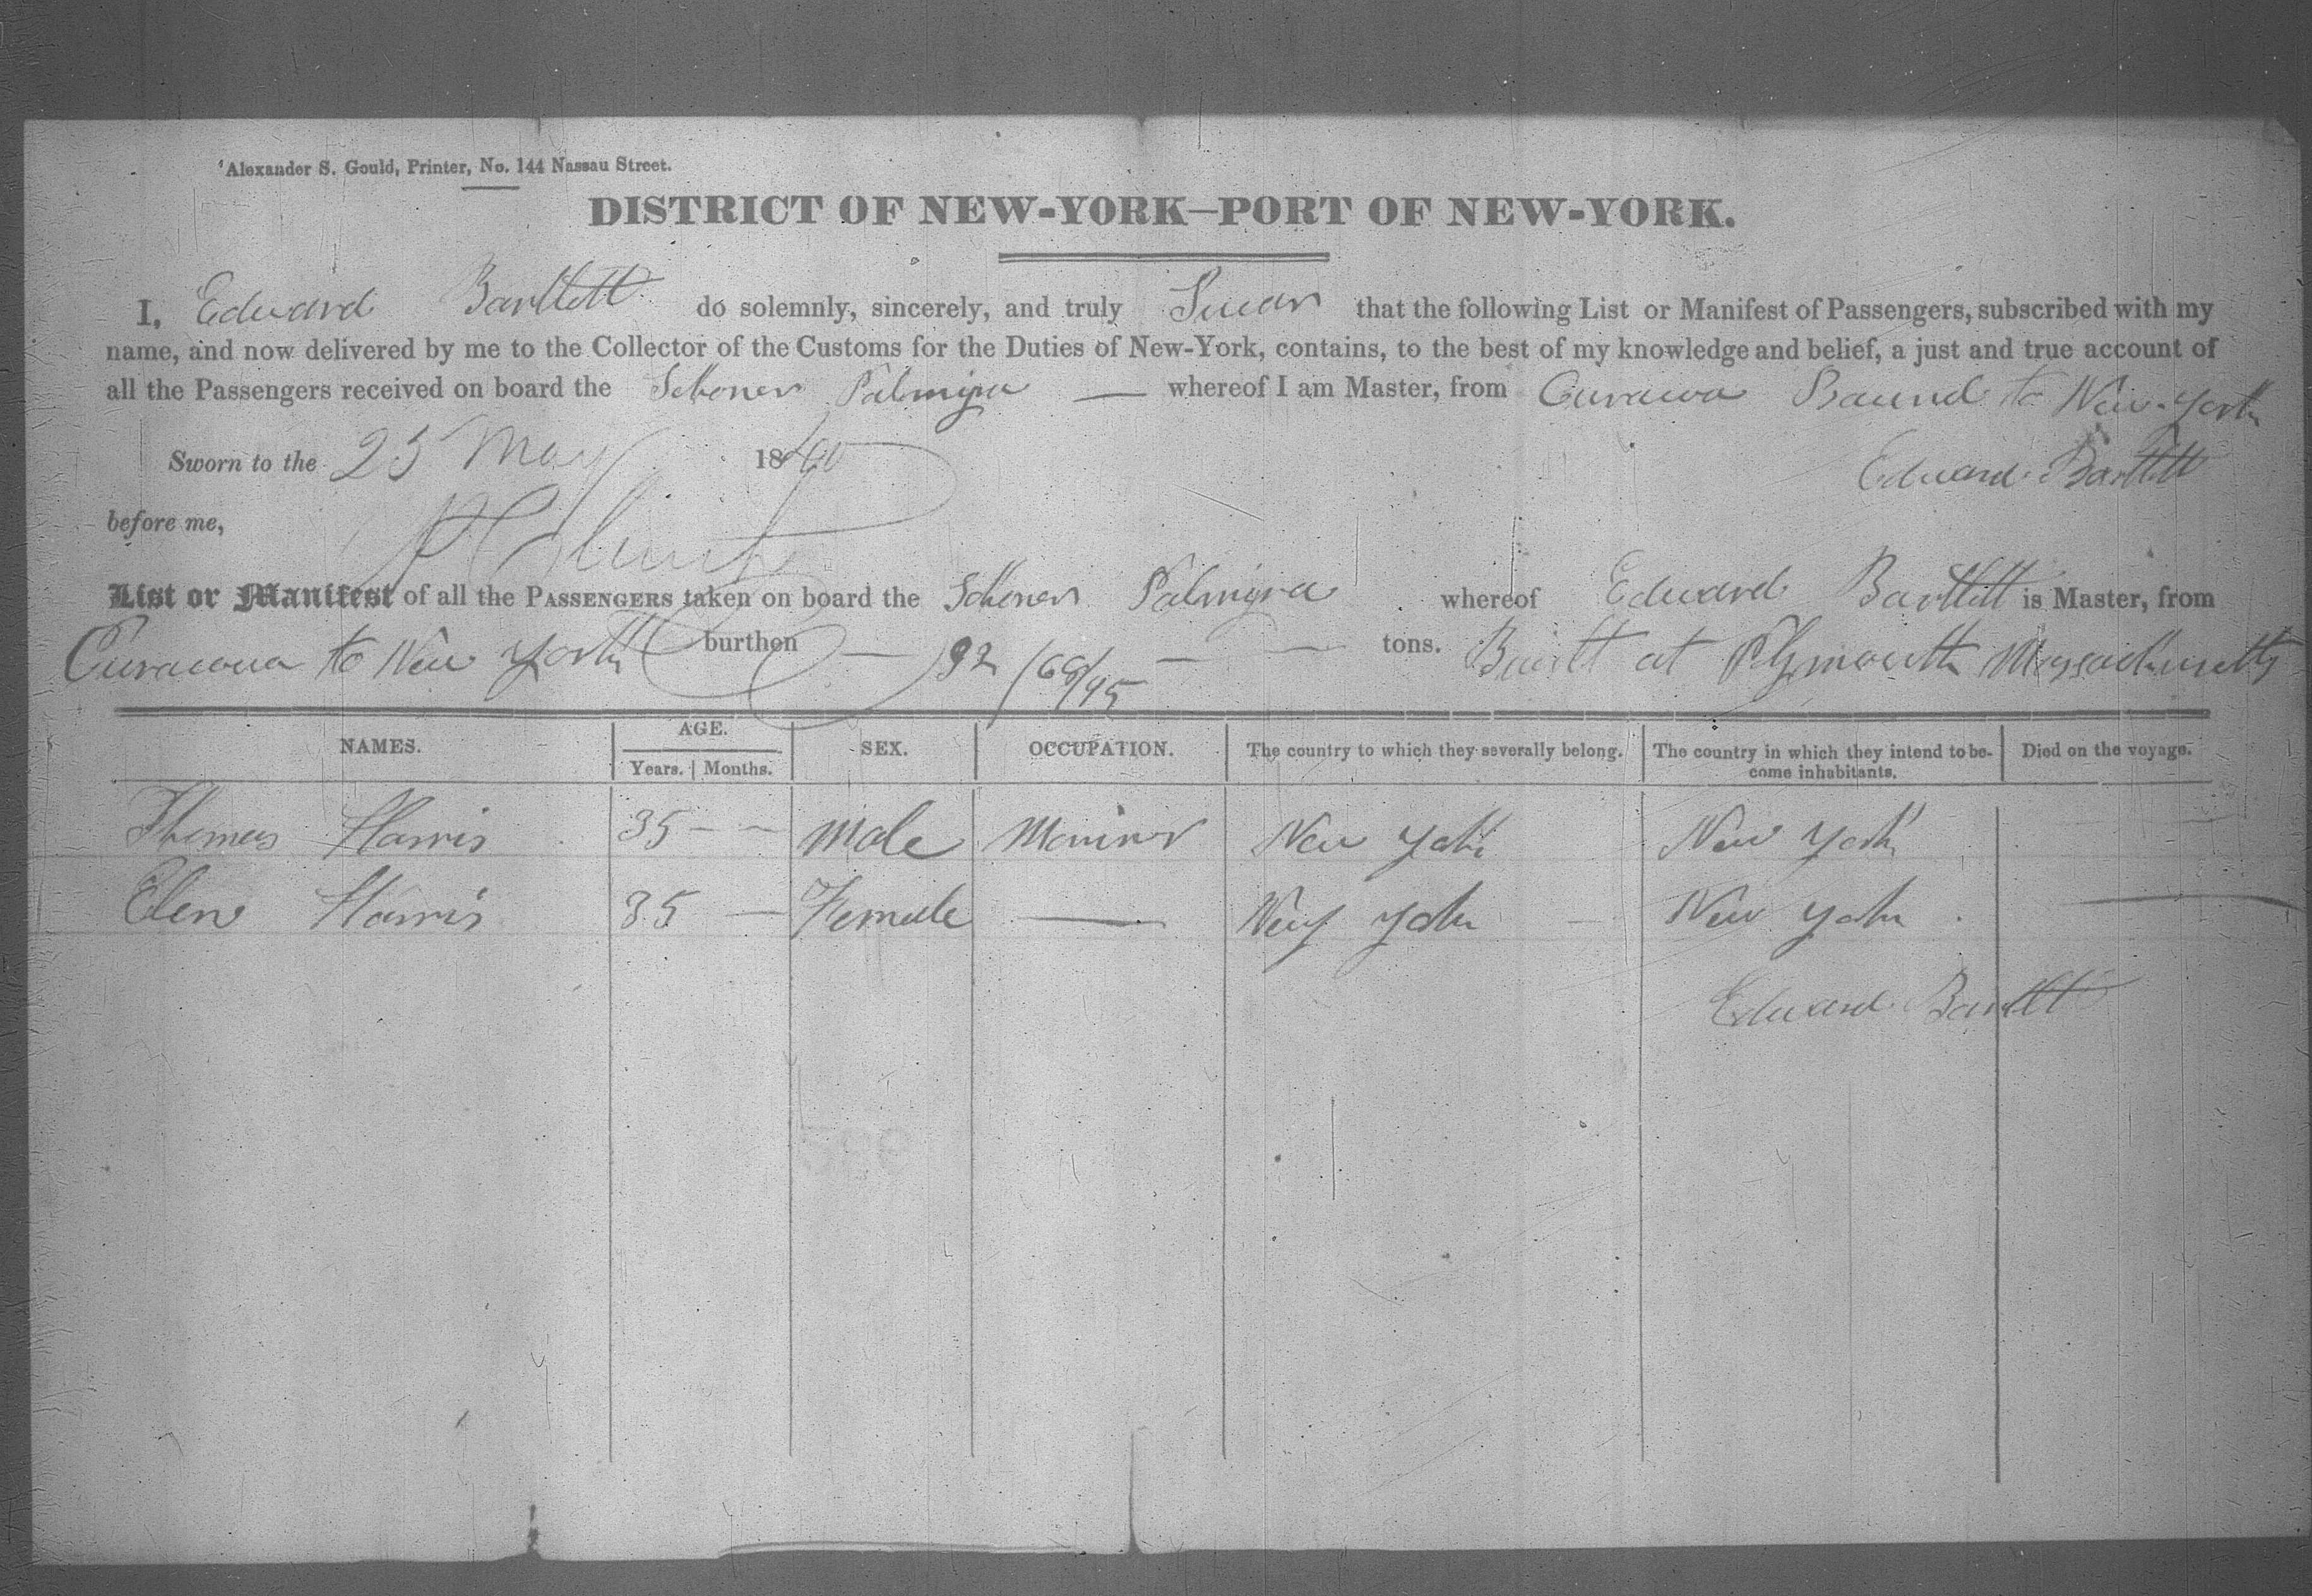 Alexander S. Gould, Printer, No. 144 Nassau Street.
DISTRICT OF NEW-YORK—PORT OF NEW-YORK.
I, Edward Bartlett do solemnly, sincerely, and truly Swear that the following List or Manifest of Passengers, subscribed with my
name, and now delivered by me to the Collector of the Customs for the Duties of New-York, contains, to the best of my knowledge and belief, a just and true account of
all the Passengers received on board the Schoner Palmyra — whereof I am Master, from Curacoa Bound to New-York
Sworn to the 25 May 1840
Edward Bartlett
before me,
List or Manifest of all the PASSENGERS taken on board the Schoner Palmyra whereof Edward Bartlett is Master, from
Curacoua to New York burthen — 92/68/95 — — tons. Built at Plymouth Massachusetts
NAMES. AGE. SEX. OCCUPATION. The country to which they severally belong. The country in which they intend to be- Died on the voyage.
Years. Months. come inhabitants.
Thomas Harris 35 - - Male Mariner New York New York
Elen Harris 35 — Female — New York New York —
Edward Bartlett